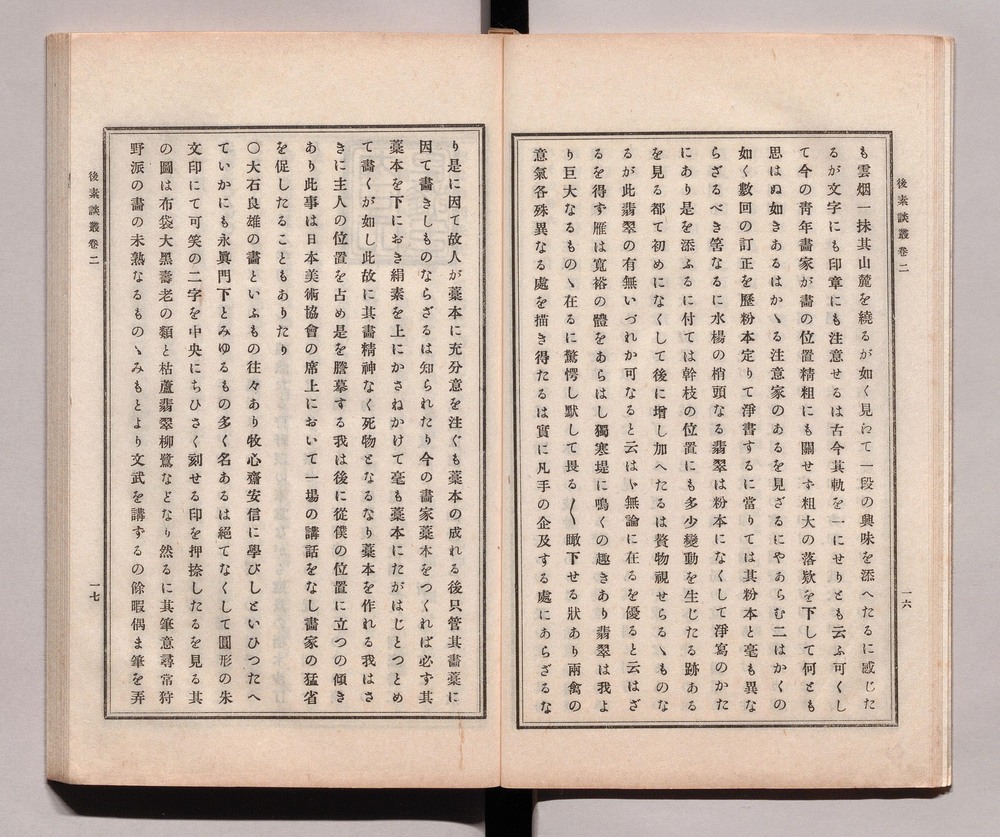 後素談叢卷二
一六
も雲烟一抹其山麓を繞るが如く見えて一段の興味を添へたるに感じた
るが文字にも印章にも注意せるは古今其軌を一にせりとも云ふ可くし
て今の靑年畫家が畫の位置精粗にも關せず粗大の落欵を下して何とも
思はぬ如きあるはかゝる注意家のあるを見ざるにやあらむ二はかくの
如く數回の訂正を歷粉本定りて淨書するに當りては其粉本と毫も異な
らざるべき筈なるに水楊の梢頭なる翡翠は粉本になくして淨寫のかた
にあり是を添ふるに付ては幹枝の位置にも多少變動を生じたる跡ある
を見る都て初めになくして後に增し加へたるは贅物視せらるゝものな
るが此翡翠の有無いづれか可なると云はゞ無論に在るを優ると云はざ
るを得ず雁は寬裕の體をあらはし獨寒堤に鳴くの趣きあり翡翠は我よ
り巨大なるものゝ在るに驚愕し默して畏る〳〵瞰下せる狀あり兩禽の
意氣各殊異なる處を描き得たるは實に凡手の企及する處にあらざるな
り是に因て故人が藁本に充分意を注ぐも藁本の成れる後只管其畫藁に
因て畫きしものならざるは知られたり今の畫家藁本をつくれば必ず其
藁本を下におき絹素を上にかさねかけて毫も藁本にたがはじとつとめ
て畵くが如し此故に其畫精神なく死物となるなり藁本を作れる我はさ
きに主人の位置を占め是を謄摹する我は後に從僕の位置に立つの傾き
あり此事は日本美術協會の席上において一場の講話をなし畫家の猛省
を促したることもありたり
〇大石良雄の畫といふもの往々あり牧心齋安信に學びしといひつたへ
ていかにも永眞門下とみゆるもの多く名あるは絕てなくして圓形の朱
文印にて可笑の二字を中央にちひさく刻せる印を押捺したるを見る其
の圖は布袋大黑壽老の類と枯蘆翡翠柳鷺などなり然るに其筆意尋常狩
野派の畫の未熟なるものゝみもとより文武を講ずるの餘暇偶ま筆を弄
後素談叢卷二
一七